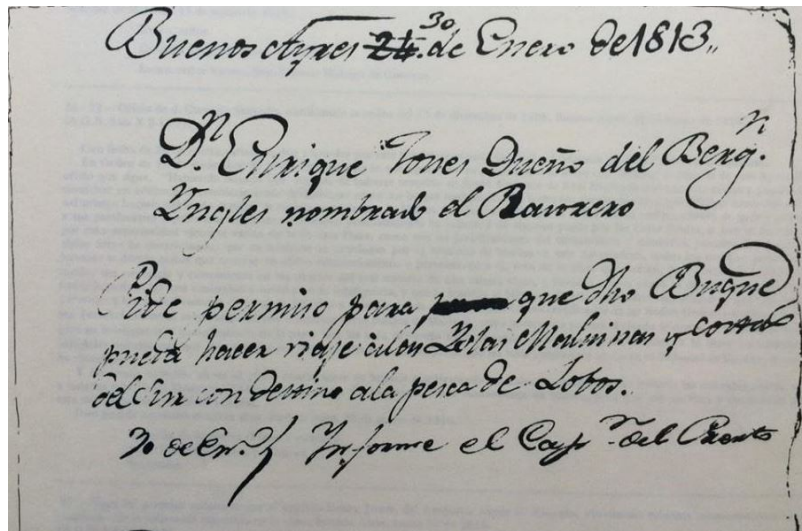 Buenos Ayres 24. 30 de Enero de 1813,,
Dn. Enrique Jones Dueño del Bergn.
Yngles nombrado el
Pide permiso para que dho Buque
pueda hacer viaje à las Yslas Malvinas y costas
del Sur con destino a la pesca de Lobos.
30 de Enº. Ynforme el Capn. del Puerto